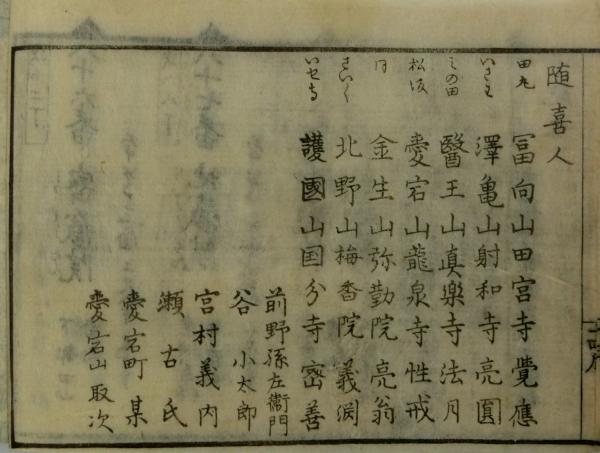 随喜人
田丸 冨向山田宮寺覺應
いさわ 澤亀山射和寺亮圓
みの田 醫王山真楽寺法月
松坂 愛宕山龍泉寺性戒
同 金生山弥勤院亮翁
さいく 北野山梅香院義渕
いせ寺 護國山国分寺密善
前野孫左衞門
谷小太郎
宮村義内
瀬古氏
愛宕町某
愛宕山取次